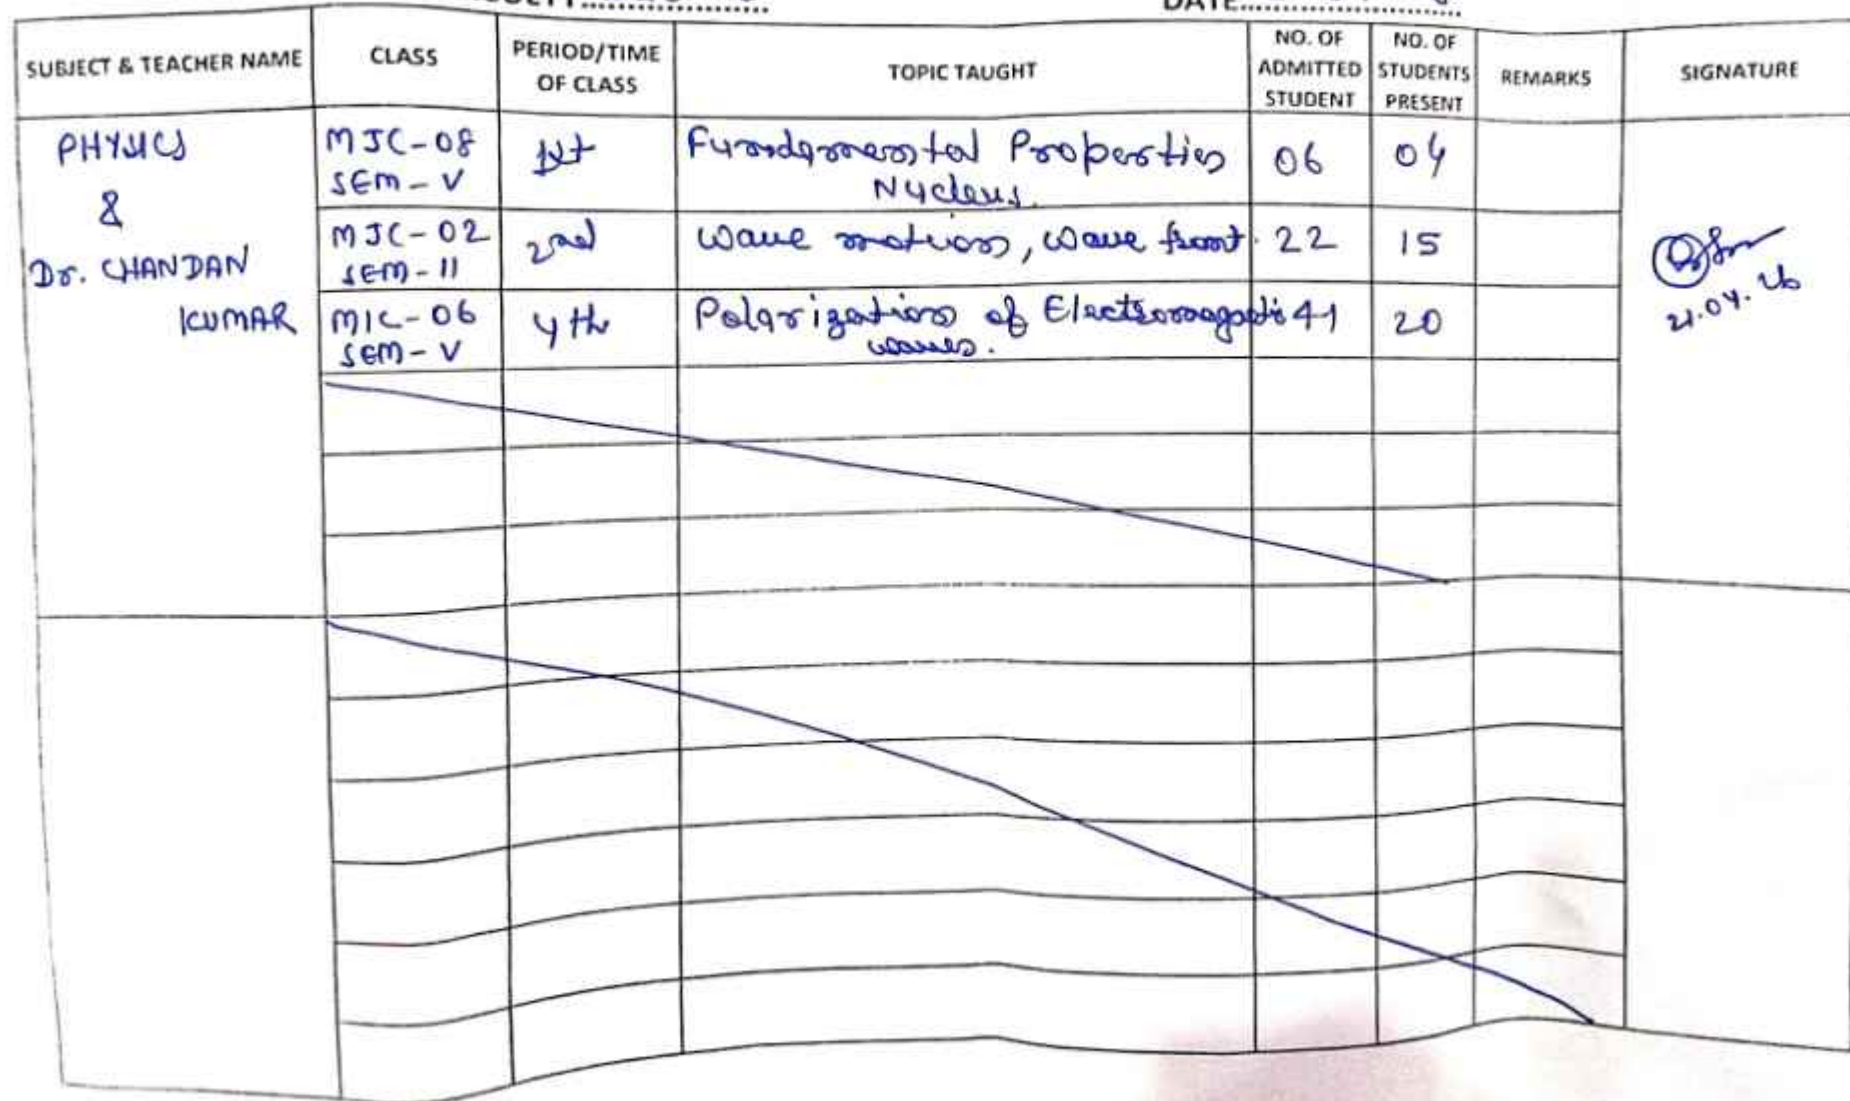 DATE
SUBJECT & TEACHER NAME CLASS PERIOD/TIME OF CLASS TOPIC TAUGHT NO. OF ADMITTED STUDENT NO. OF STUDENTS PRESENT REMARKS SIGNATURE
PHYSICS
&
Dr. CHANDAN
KUMAR
MJC-08
SEM-V
1st
Fundamental Properties
Nucleus.
06
04
MJC-02
SEM-II
2nd
Wave motion, Wave front.
22
15
MIC-06
SEM-V
4th
Polarization of Electromagnetic
waves.
41
20
21.04.26